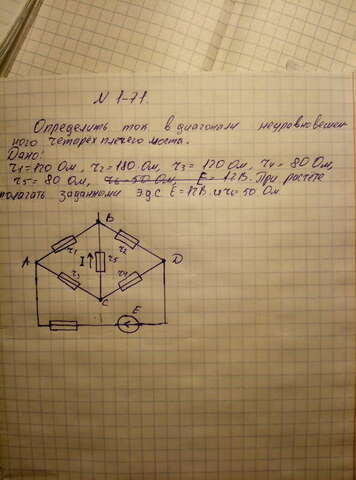 N 1-71.
Определить ток в диагонали неуравновешен-
ного четырех плечего моста.
Дано:
r1=120 Ом, r2=180 Ом, r3= 120 Ом, r4= 80 Ом,
r5= 80 Ом, r6=50 Ом, E= 12В. При расчете
полагать заданными ЭДС E=12В и r0=50 Ом
B
r1 r2
A I r5 D
r3 r4
C
E